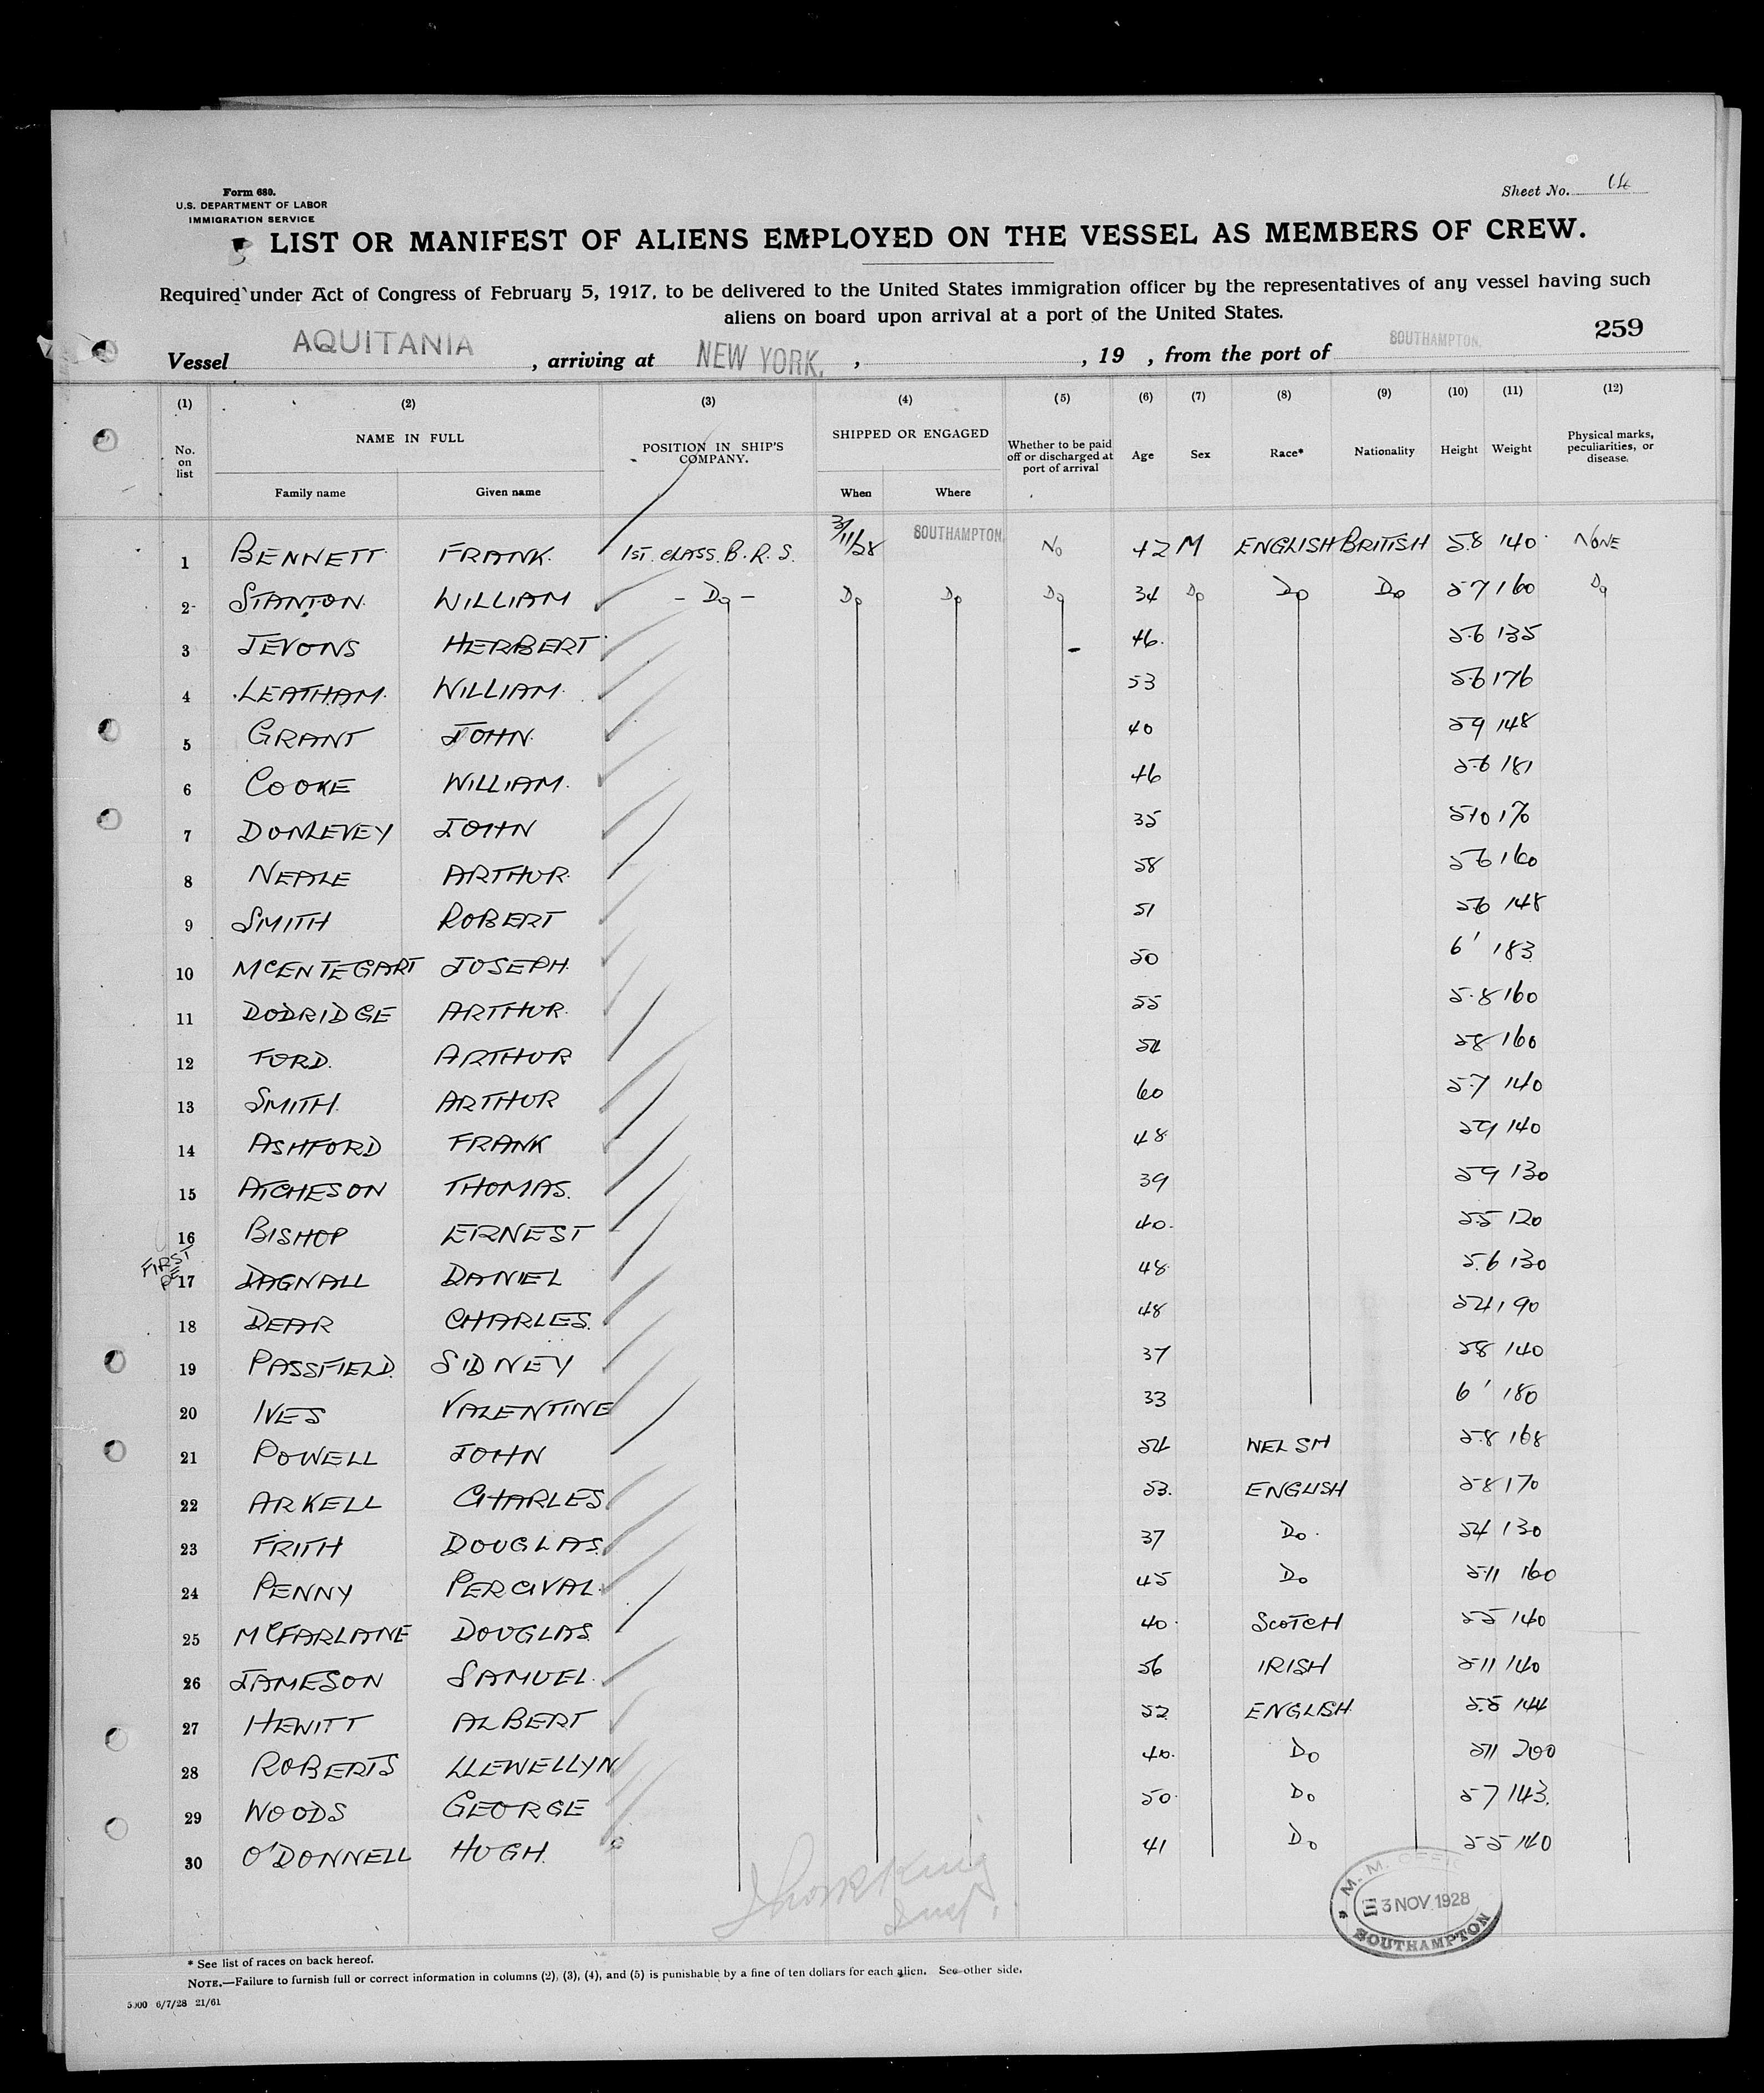 Form 680.
U.S. DEPARTMENT OF LABOR
IMMIGRATION SERVICE
Sheet No. 14
LIST OR MANIFEST OF ALIENS EMPLOYED ON THE VESSEL AS MEMBERS OF CREW.
Required under Act of Congress of February 5, 1917, to be delivered to the United States immigration officer by the representatives of any vessel having such
aliens on board upon arrival at a port of the United States.
259
Vessel AQUITANIA, arriving at NEW YORK, , 19 , from the port of SOUTHAMPTON.
(1) (2) (3) (4) (5) (6) (7) (8) (9) (10) (11) (12)
No. on list NAME IN FULL POSITION IN SHIP'S COMPANY. SHIPPED OR ENGAGED Whether to be paid off or discharged at port of arrival Age Sex Race* Nationality Height Weight Physical marks, peculiarities, or disease.
Family name Given name When Where
1 BENNETT FRANK. 1ST. CLASS. B.R.S. 3/11/28 SOUTHAMPTON. No 42 M ENGLISH BRITISH 5.8 140 NONE
2 STANTON. WILLIAM - Do - Do Do Do 34 Do Do Do 5 7 160 Do
3 JEVONS HERBERT 46. 5.6 135
4 LEATHAM. WILLIAM. 53 5.6 176
5 GRANT JOHN. 40 5 9 148
6 COOKE WILLIAM. 46 5.6 181
7 DONLEVEY JOHN 35 5 10 170
8 NEALE ARTHUR. 58 5 6 160
9 SMITH ROBERT 51 5.6 148
10 McENTEGART JOSEPH. 50 6' 183
11 DODRIDGE ARTHUR. 55 5.8 160
12 FORD. ARTHUR 54 5 8 160
13 SMITH. ARTHUR 60 5.7 140
14 ASHFORD FRANK 48 5 9 140
15 ATCHESON THOMAS. 39 5 9 130
16 BISHOP ERNEST 40. 5.5 120
FIRST RE
17 DAGNALL DANIEL 48 5.6 130
18 DEAR CHARLES. 48 5 4 190
19 PASSFIELD. SIDNEY 37 5 8 140
20 IVES VALENTINE 33 6' 180
21 POWELL JOHN 54 WELSH 5.8 168
22 ARKELL CHARLES. 53. ENGLISH 5 8 170
23 FRITH DOUGLAS. 37 Do. 5 4 130
24 PENNY PERCIVAL. 45 Do 5 11 160
25 McFARLANE DOUGLAS. 40. SCOTCH 5 5 140
26 JAMESON SAMUEL. 56 IRISH 5 11 140
27 HEWITT ALBERT 52 ENGLISH. 5.8 144
28 ROBERTS LLEWELLYN 40. Do 5 11 200
29 WOODS GEORGE 50. Do 5 7 143.
30 O'DONNELL HUGH. 41 Do 5 5 140
M.M. OFFICE
3 NOV 1928
SOUTHAMPTON
* See list of races on back hereof.
NOTE.—Failure to furnish full or correct information in columns (2), (3), (4), and (5) is punishable by a fine of ten dollars for each alien. See other side.
5000 6/7/28 21/61